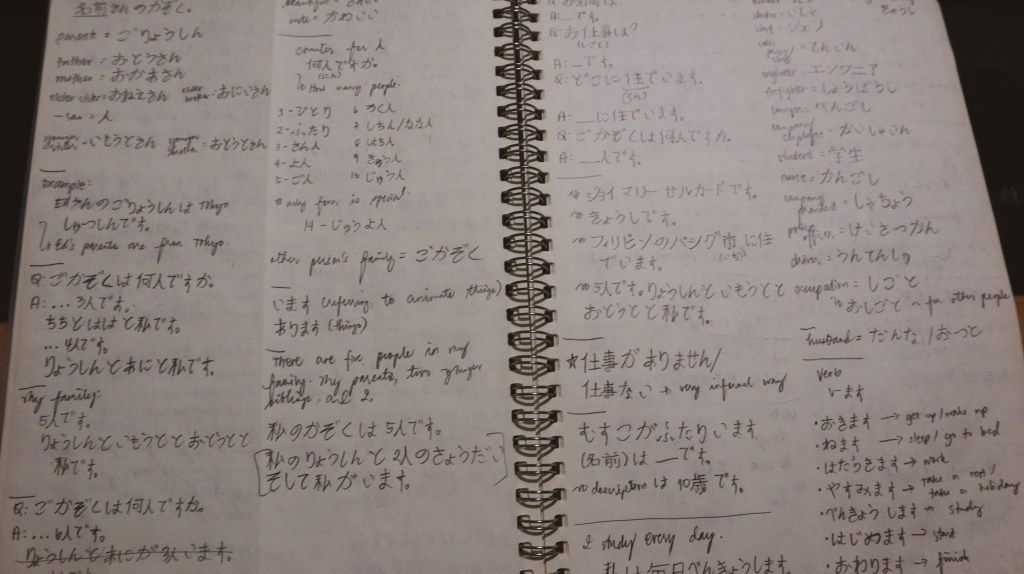 名前さんのかぞく.
parents = ごりょうしん
father = おとうさん
mother = おかあさん
elder sister = おねえさん elder brother = おにいさん
-san = 人
younger sister = いもうとさん younger brother = おとうとさん
Example:
さんのごりょうしんは Tokyo
しゅっしんです。
↳ Ed's parents are from Tokyo.
Q: ごかぞくは何人ですか.
A: ... 3人です.
ちちとははと私です。
... 4人です。
りょうしんとあにと私です。
My family:
5人です。
りょうしんといもうととおとうとと
私です。
Q: ごかぞくは何人ですか.
A: ... 6人です。
りょうしんとあにが3人います.
cute = かわいい
counter for 人
何人ですか.
(にん)
↳ How many people.
1 - ひとり 6 ろく人
2 - ふたり 7 しち人/なな人
3 - さん人 8 はち人
4 - よ人 9 きゅう人
5 - ご人 10 じゅう人
14 - じゅうよ人
other person's family = ごかぞく
います (referring to animate things)
あります (things)
There are five people in my
family: my parents, two younger
siblings, and I.
私のかぞくは5人です.
私のりょうしんと2人のきょうだい
そして私がいます.
A: __です.
Q: お仕事は?
(しごと)
A: __です.
Q: どこに住でいます.
(すん)
A: __に住でいます.
Q: ごかぞくは何人ですか.
A: __人です.
ジョイ マリー サルカードです.
きょうしです.
フィリピンのパシグ市に住
でいます.
5人です。りょうしんといもうとと
おとうとと私です.
☆仕事がありません/
仕事ない → very informal way
むすこがふたりいます
(名前)は __です.
description は 10歳です.
I study every day.
私は毎日べんきょうします.
chef = シェフ
てんいん
engineer = エンジニア
firefighter = しょうぼうし
lawyer = べんごし
company employee = かいしゃいん
student = 学生
nurse = かんごし
company president = しゃちょう
police officer = けいさつかん
driver = うんてんしゅ
occupation = しごと
おしごと ~ for other people
husband = だんな/おっと
verb
V-ます
・おきます → get up/wake up
・ねます → sleep/go to bed
・はたらきます → work
・やすみます → take a rest/
take a holiday
・べんきょうします → study
・はじめます → start
・おわります → finish